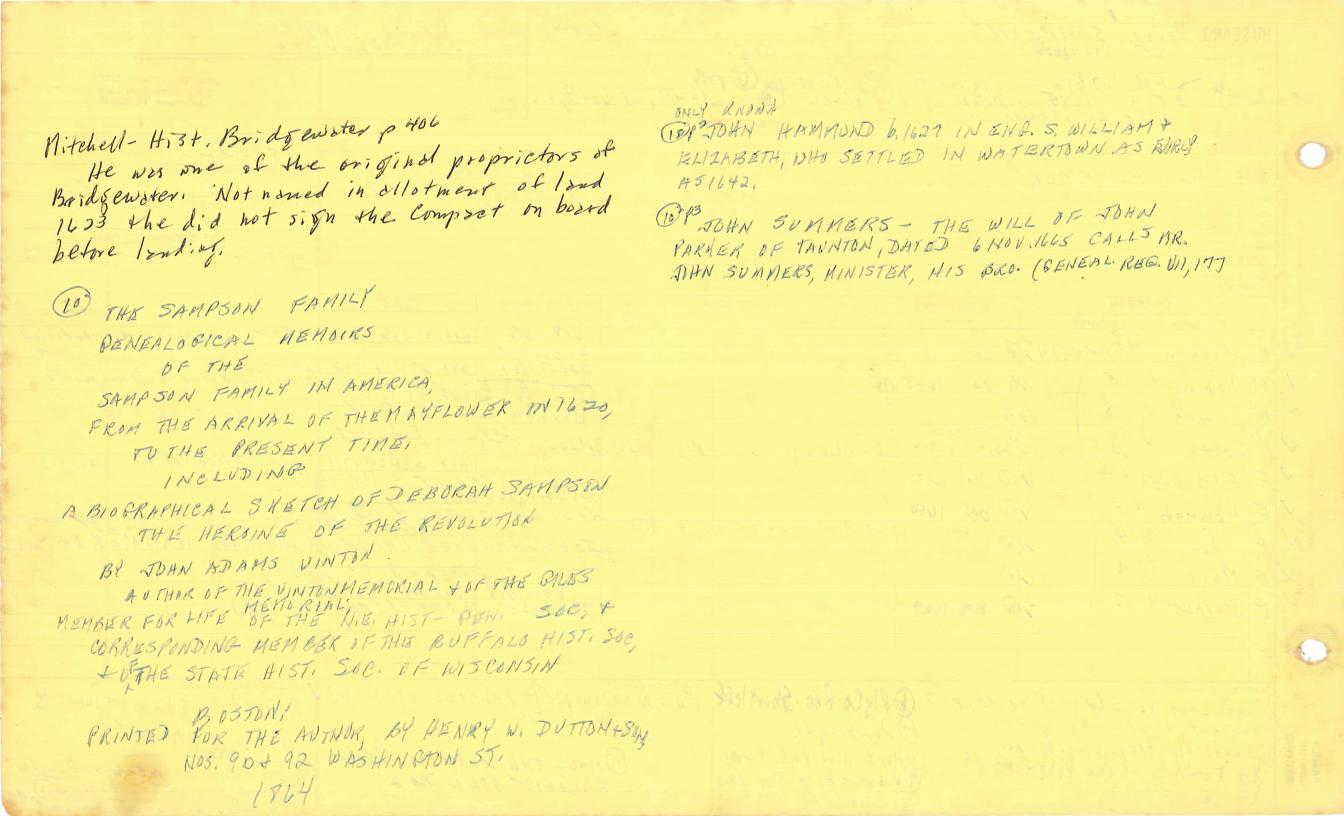 Mitchell - Hist. Bridgewater p 406
He was one of the original proprietors of
Bridgewater. Not named in allotment of land
1623 & he did not sign the Compact on board
before landing.
10 THE SAMPSON FAMILY
GENEALOGICAL MEMOIRS
OF THE
SAMPSON FAMILY IN AMERICA,
FROM THE ARRIVAL OF THE MAYFLOWER IN 1620,
TO THE PRESENT TIME.
INCLUDING
A BIOGRAPHICAL SKETCH OF DEBORAH SAMPSON
THE HEROINE OF THE REVOLUTION
BY JOHN ADAMS VINTON.
AUTHOR OF THE VINTON MEMORIAL & OF THE GILES
MEMORIAL;
MEMBER FOR LIFE OF THE N.E. HIST- GEN. SOC, &
CORRESPONDING MEMBER OF THE BUFFALO HIST. SOC,
& OF THE STATE HIST. SOC. OF WISCONSIN
BOSTON:
PRINTED FOR THE AUTHOR, BY HENRY W. DUTTON & SON,
NOS. 90 & 92 WASHINGTON ST.
1864
ONLY KNOWN
JOHN HAMMOND b. 1627 IN ENG. S. WILLIAM &
ELIZABETH, WHO SETTLED IN WATERTOWN AS EARLY
AS 1642.
10 p3 JOHN SUMMERS - THE WILL OF JOHN
PARKER OF TAUNTON, DATED 6 NOV. 1665 CALLS MR.
JOHN SUMMERS, MINISTER, HIS BRO. (GENEAL. REG. VII, 177